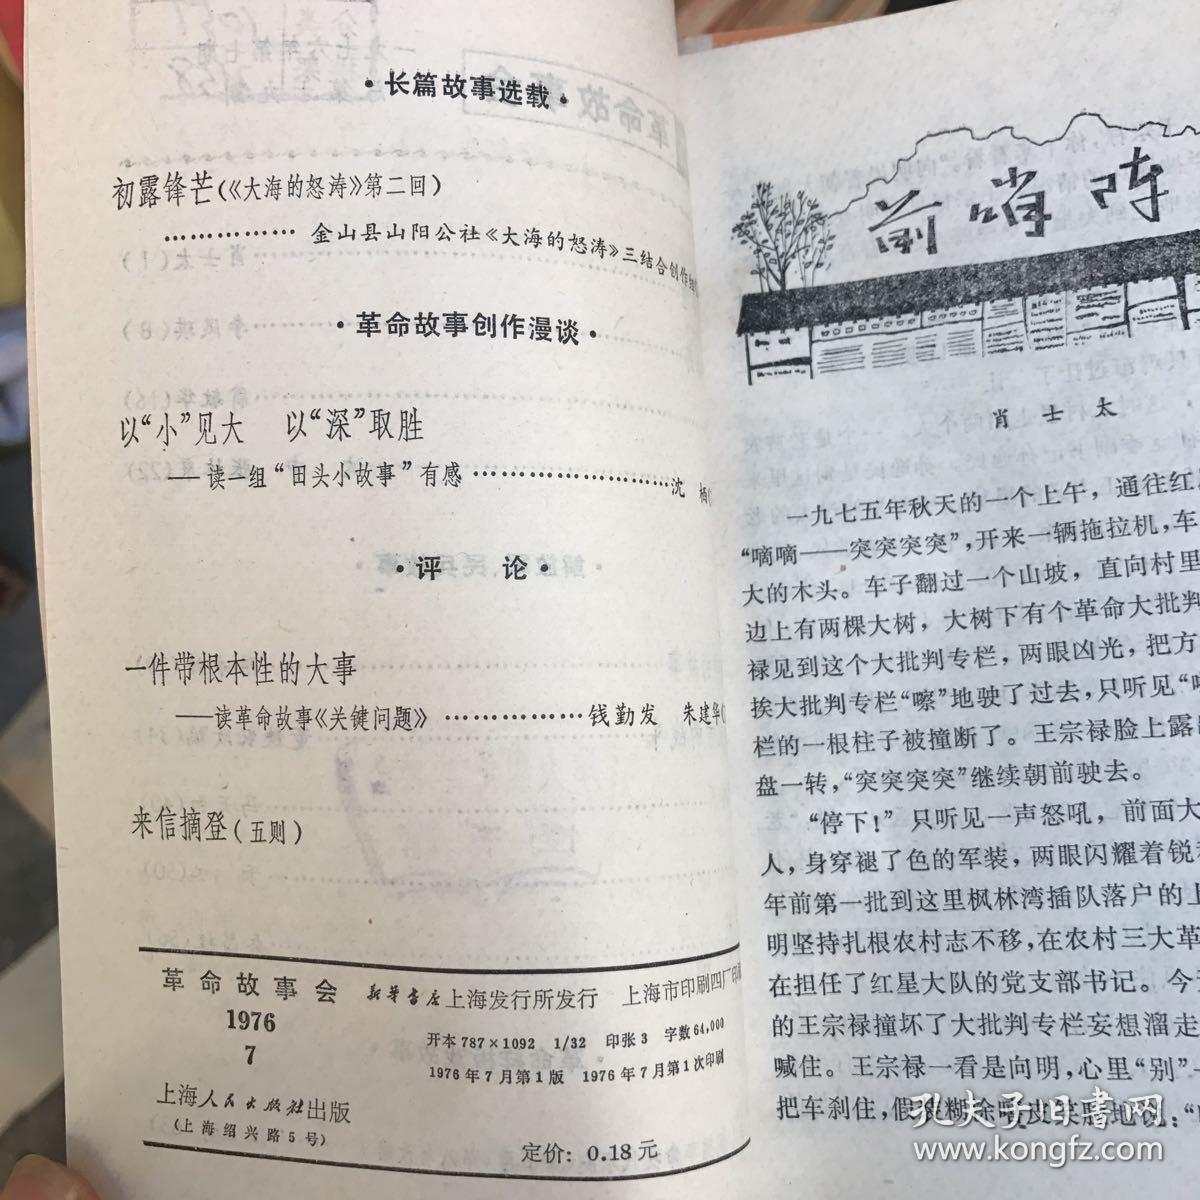 ·长篇故事选载·
初露锋芒(《大海的怒涛》第二回)
…………… 金山县山阳公社《大海的怒涛》三结合创作组
·革命故事创作漫谈·
以“小”见大 以“深”取胜
——读一组“田头小故事”有感……………………沈 栖
·评 论·
一件带根本性的大事
——读革命故事《关键问题》……………钱勤发 朱建华
来信摘登(五则)
革命故事会
1976
7
上海人民出版社出版
(上海绍兴路5号)
新华书店上海发行所发行 上海市印刷四厂印刷
开本 787×1092 1/32 印张 3 字数 64,000
1976年7月第1版 1976年7月第1次印刷
定价: 0.18元
前哨阵
肖士太
一九七五年秋天的一个上午，通往红
“嘀嘀——突突突突”，开来一辆拖拉机，车
大的木头。车子翻过一个山坡，直向村里
边上有两棵大树，大树下有个革命大批判
禄见到这个大批判专栏，两眼凶光，把方
挨大批判专栏“嚓”地驶了过去，只听见“
栏的一根柱子被撞断了。王宗禄脸上露
盘一转，“突突突突”继续朝前驶去。
“停下！”只听见一声怒吼，前面大
人，身穿褪了色的军装，两眼闪耀着锐
年前第一批到这里枫林湾插队落户的上
明坚持扎根农村志不移，在农村三大革
在担任了红星大队的党支部书记。今
的王宗禄撞坏了大批判专栏妄想溜走
喊住。王宗禄一看是向明，心里“别”
把车刹住，假装糊涂嘻皮笑脸地说：“
孔夫子旧书网
www.kongfz.com